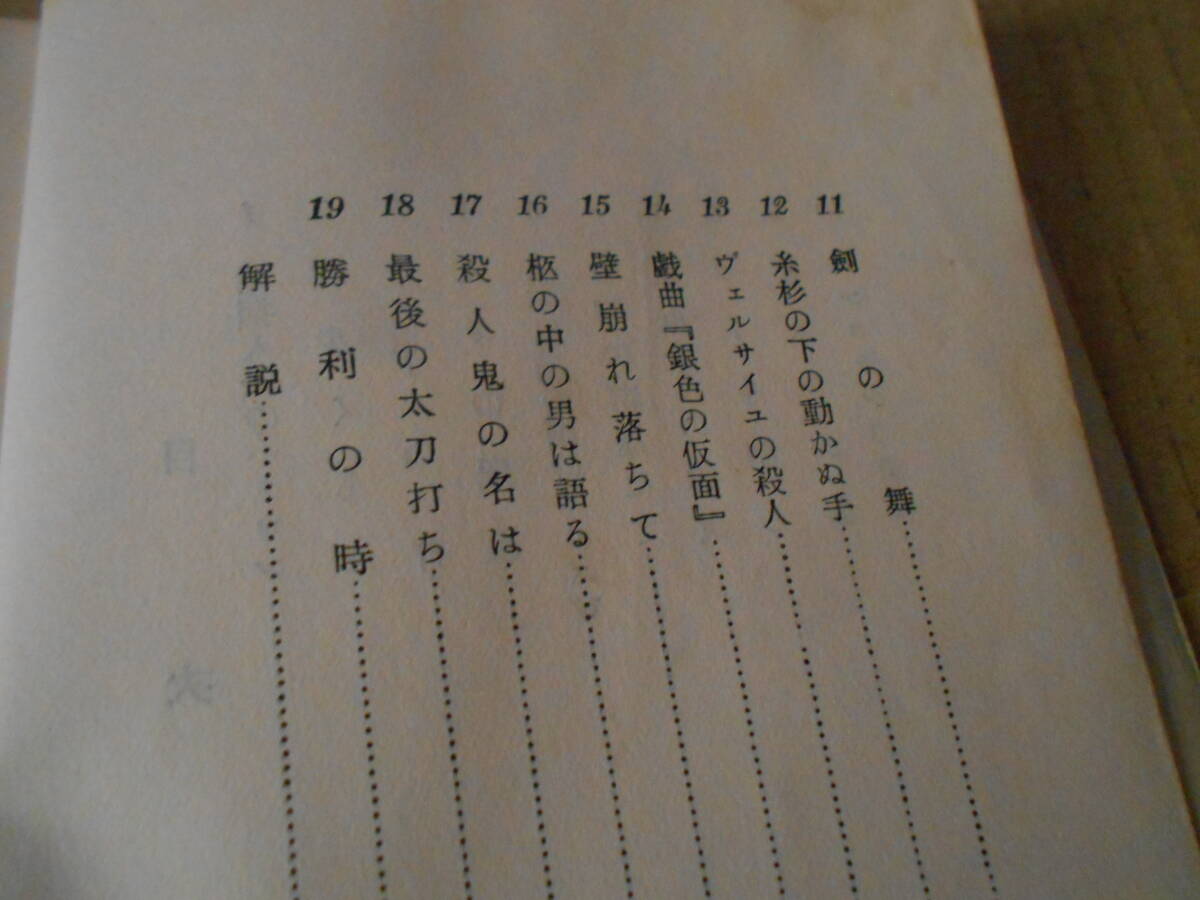 11 劍の舞
12 糸杉の下の動かぬ手
13 ヴェルサイユの殺人
14 戯曲『銀色の仮面』
15 壁崩れ落ちて
16 柩の中の男は語る
17 殺人鬼の名は
18 最後の太刀打ち
19 勝利の時
解説